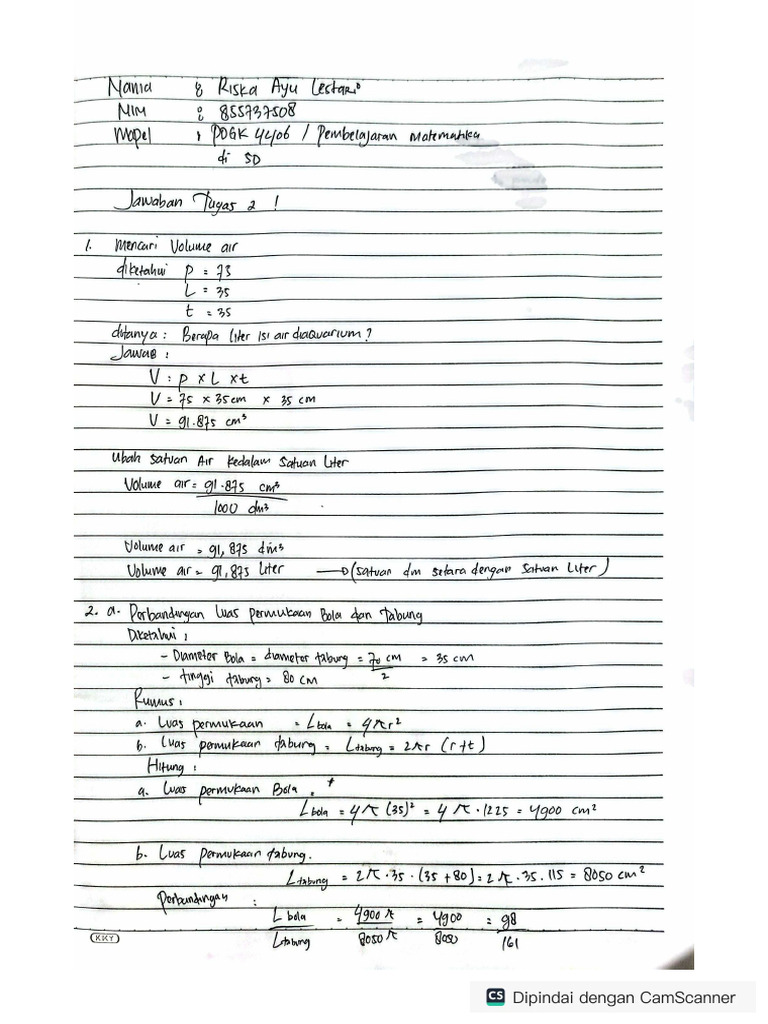 Nama : Riska Ayu Lestari
NIM : 855737508
Mapel : PDGK 4406 / Pembelajaran Matematika
di SD
Jawaban Tugas 2 !
1. Mencari Volume air
diketahui p = 75
L = 35
t = 35
ditanya : Berapa liter isi air diaquarium ?
Jawab :
V : p x L x t
V = 75 x 35 cm x 35 cm
V = 91.875 cm³
Ubah satuan Air kedalam satuan liter
Volume air = 91.875 cm³
1000 dm³
Volume air = 91,875 dm³
Volume air = 91,875 liter → (satuan dm setara dengan satuan liter)
2. a. Perbandingan luas permukaan Bola dan Tabung
Diketahui :
- Diameter Bola = diameter tabung = 70 cm = 35 cm
2
- tinggi tabung = 80 cm
Rumus :
a. Luas permukaan = L bola = 4πr²
b. Luas permukaan tabung = L tabung = 2πr (r+t)
Hitung :
a. Luas permukaan Bola :
L bola = 4π (35)² = 4π . 1225 = 4900 cm²
b. Luas permukaan tabung.
L tabung = 2π . 35 . (35 + 80) = 2π . 35 . 115 = 8050 cm²
Perbandingan :
L bola = 4900 π = 4900 = 98
L tabung 8050 π 8050 161
KKY
CS Dipindai dengan CamScanner